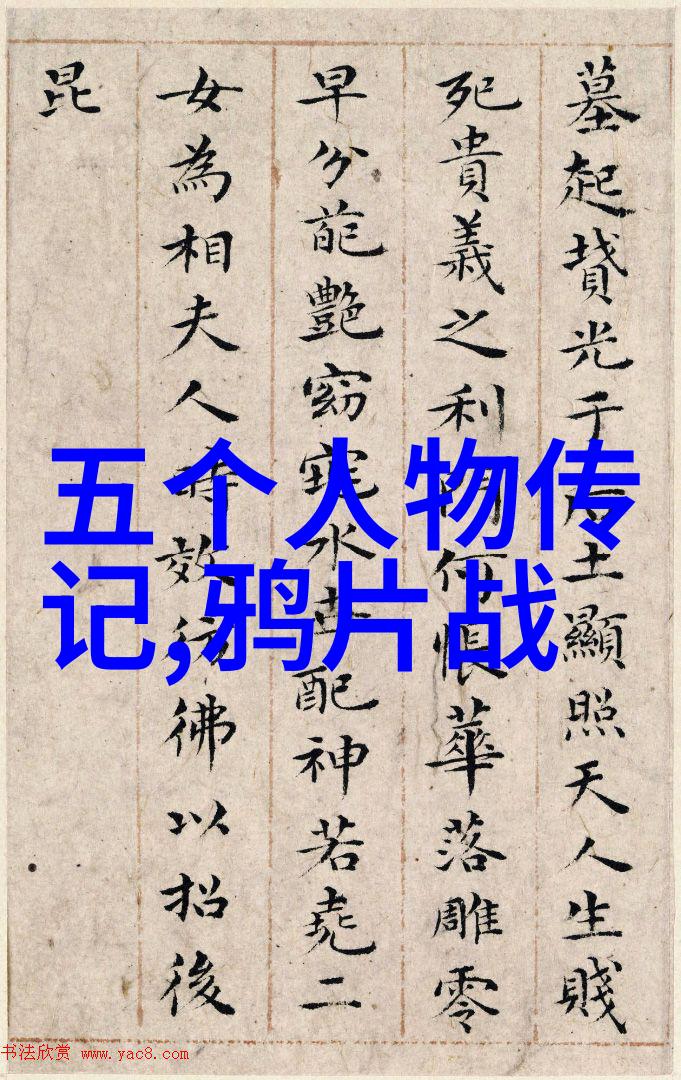 墓起墳光于后土顯照天人生賤
死貴義之利門何悵華落雕零
早分葩艷窈窕永世配神若堯二
女為相夫人時效彷彿以招後
昆
五个人物传
记,鸦片战
书法欣赏 www.yac8.com